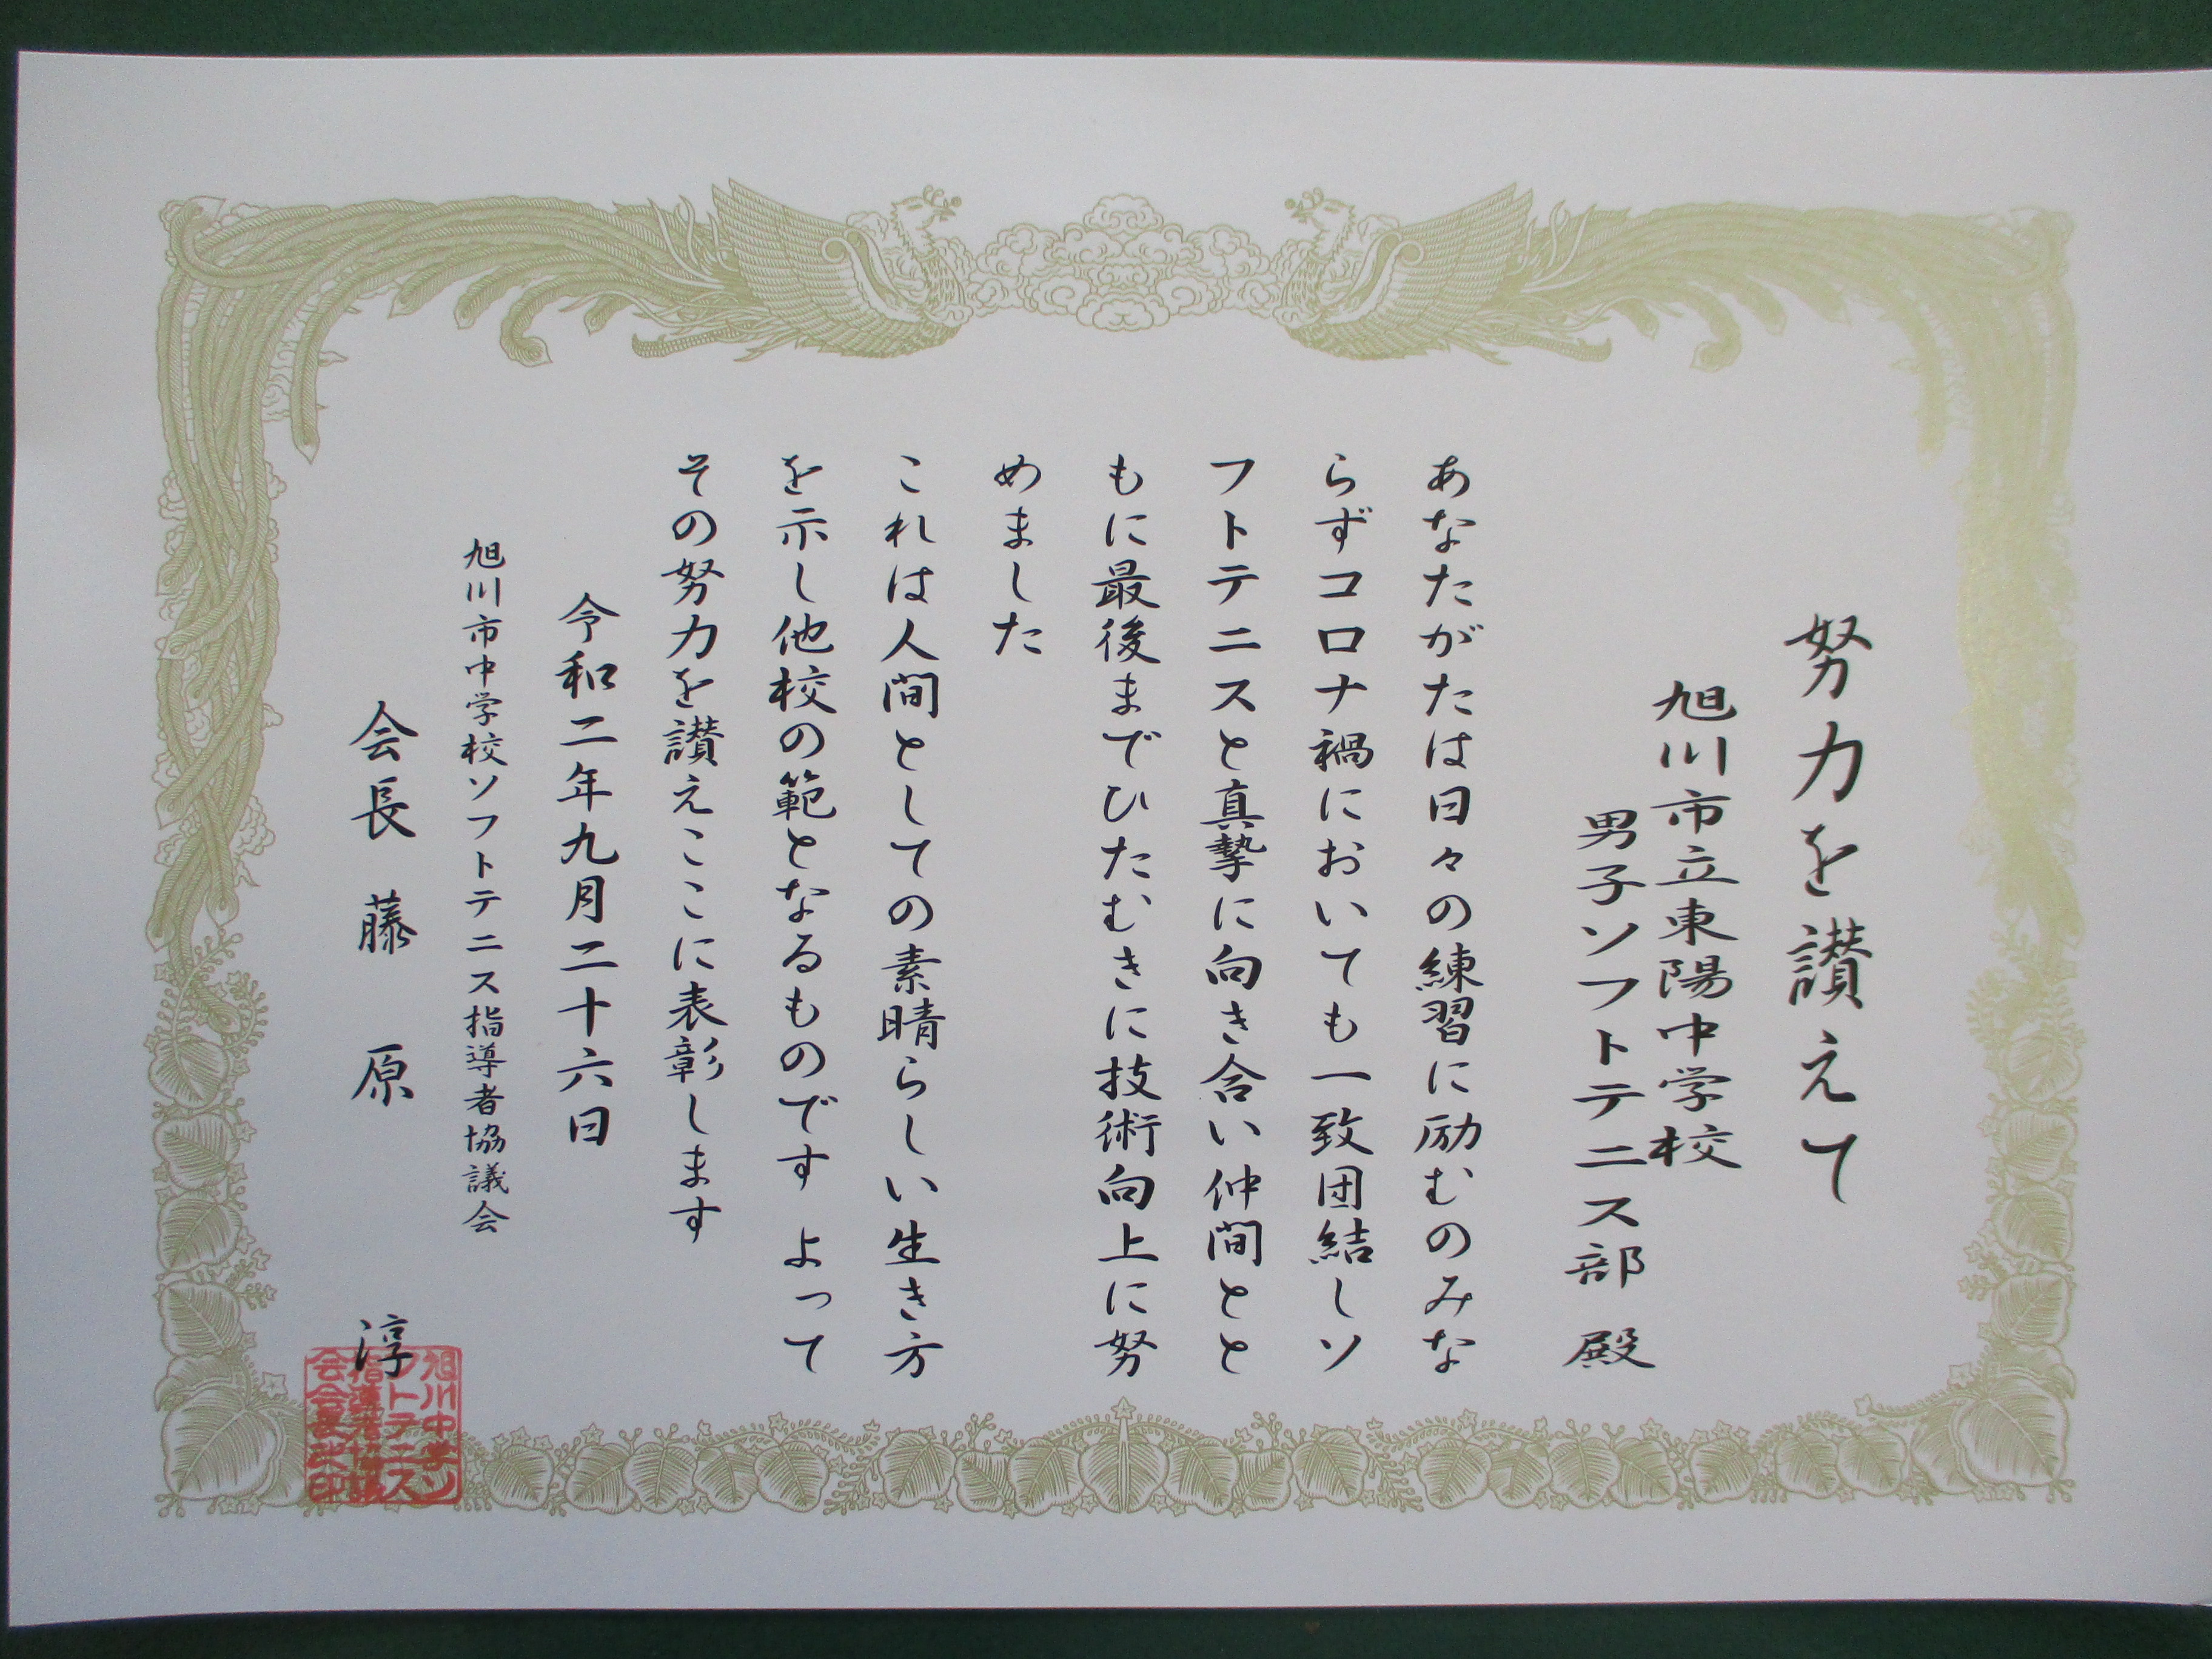 努力を讃えて
旭川市立東陽中学校
男子ソフトテニス部 殿
あなたがたは日々の練習に励むのみな
らずコロナ禍においても一致団結しソ
フトテニスと真摯に向き合い仲間とと
もに最後までひたむきに技術向上に努
めました
これは人間としての素晴らしい生き方
を示し他校の範となるものです よって
その努力を讃えここに表彰します
令和二年九月二十六日
旭川市中学校ソフトテニス指導者協議会
会長 藤原 淳
旭川中学ソ
フトテニス
指導者協議
会会長之印